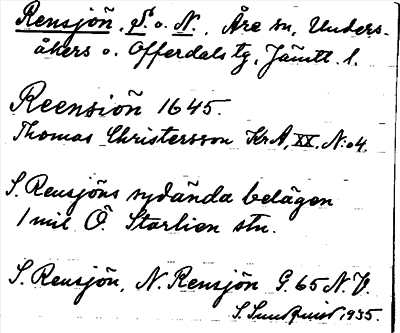 Rensjöñ, S. o. N., Åre sn, Unders-
åkers o. Offerdals tg, Jämtl. l.
Reensioñ 1645.
Thomas Christersson KrA, XX. N:o 4.
S. Rensjöns sydända belägen
1 mil Ö. Storlien stn.
S. Rensjöñ, N. Rensjön G. 65 N.V.
S. Sundqvist, 1935.